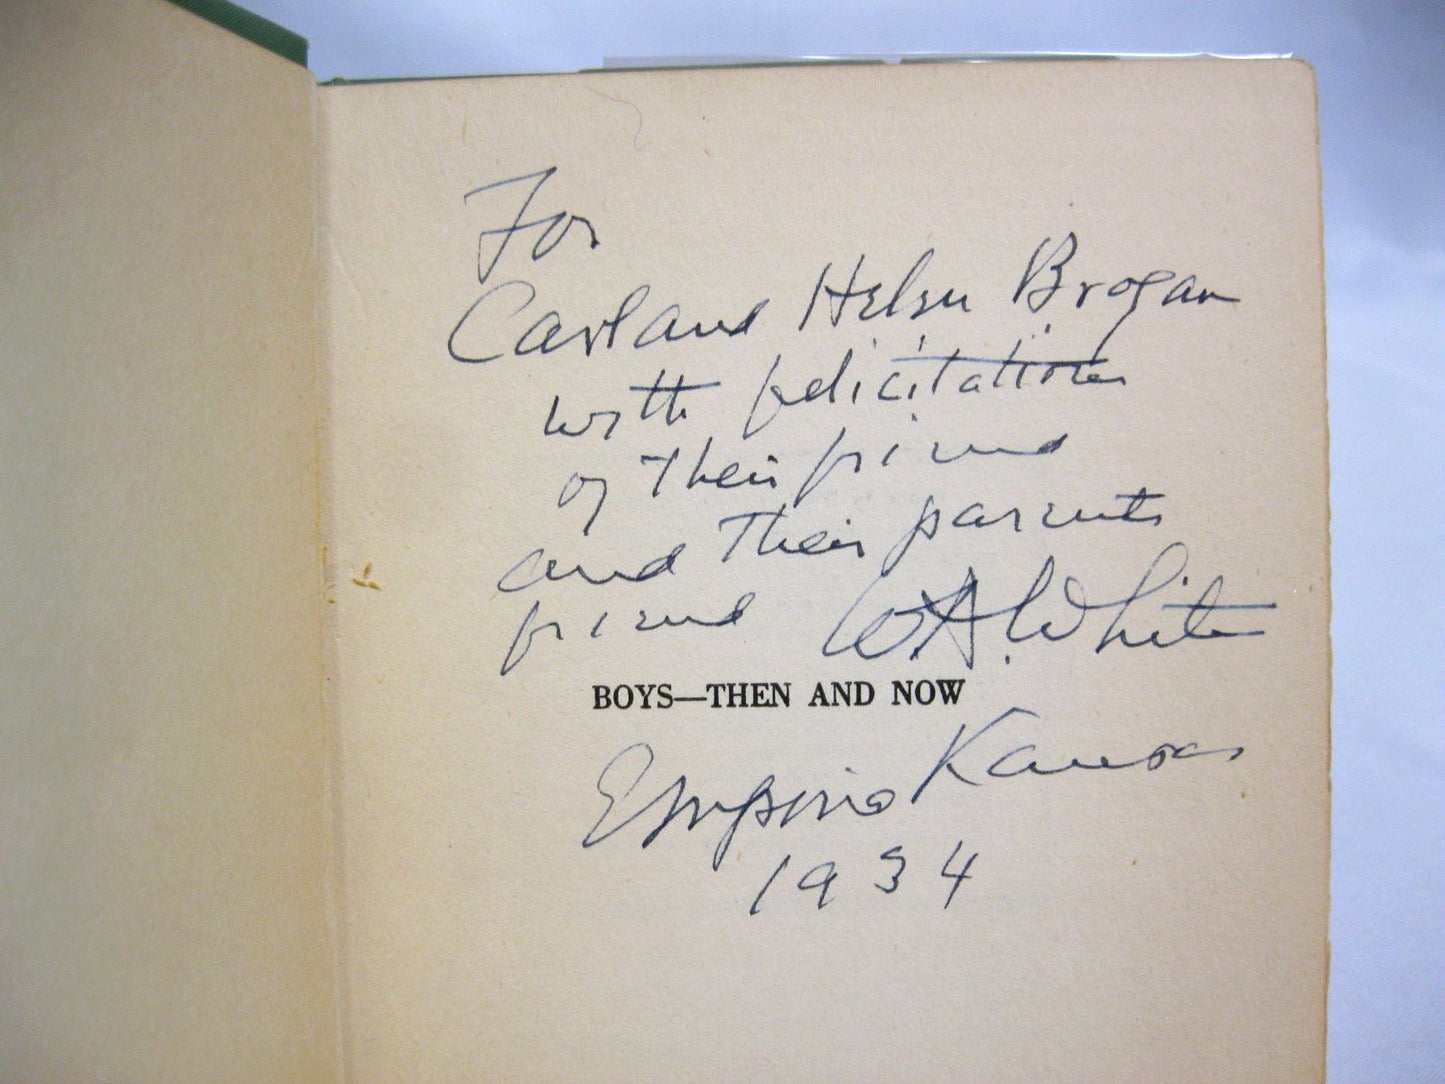 For
Carl and Helen Brogan
with felicitations
of their friend
and their parents
friend W. A. White
BOYS—THEN AND NOW
Emporia Kansas
1934